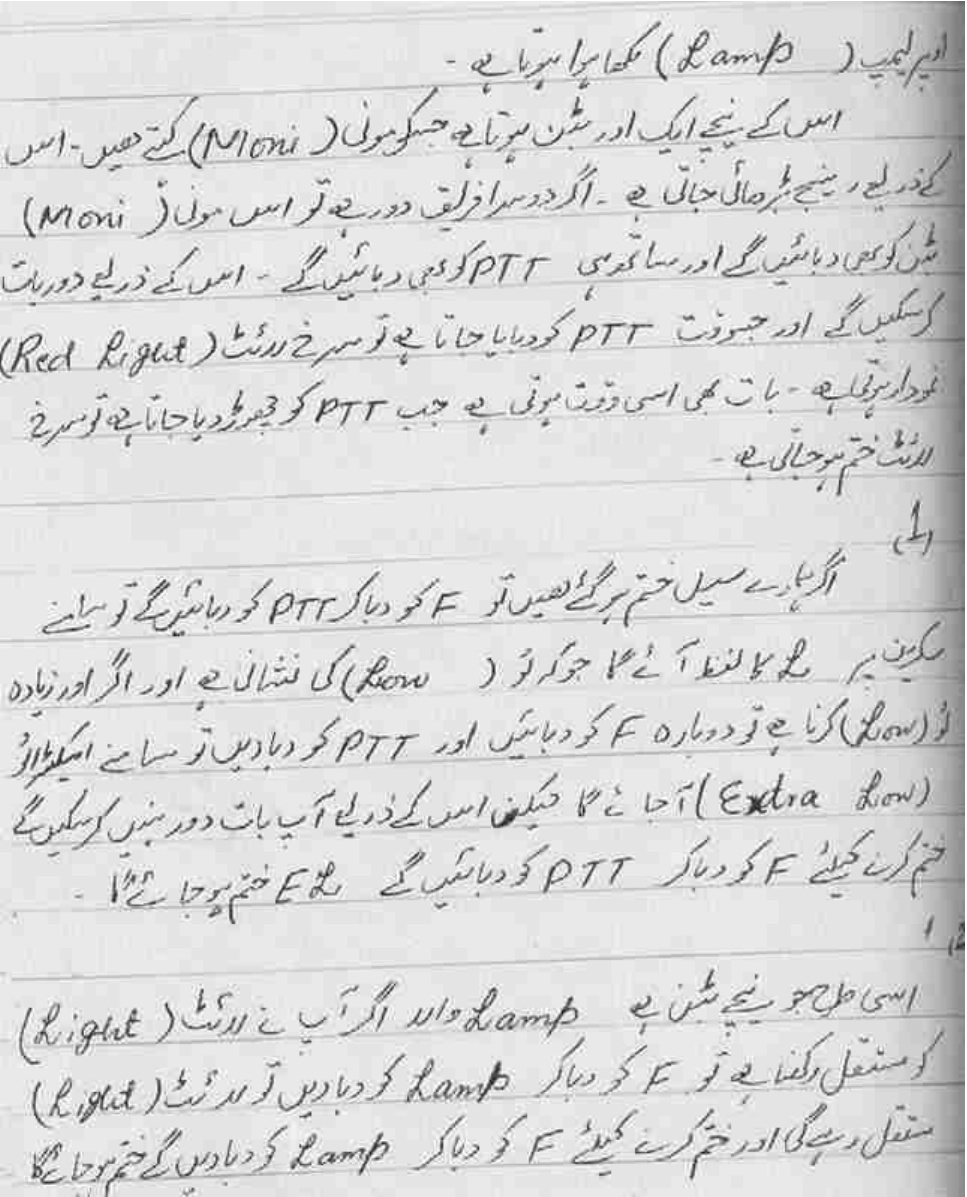 اوپر لیمپ ( Lamp ) لکھا ہوا ہوتا ہے -
اس کے نیچے ایک اور بٹن ہوتا ہے جسکو مونی ( Moni ) کہتے ھیں - اس
کے ذریعے رینج بڑھائی جاتی ہے - اگر دوسرا فریق دور ہے تو اس مونی ( Moni )
بٹن کو بھی دبائیں گے اور ساتھ ہی PTT کو بھی دبائیں گے - اس کے ذریعے دور بات
کرسکیں گے اور جسوقت PTT کو دبایا جاتا ہے تو سرخ لائٹ ( Red Light )
نمودار ہوتی ہے - بات بھی اسی وقت ہوتی ہے جب PTT کو چھوڑ دیا جاتا ہے تو سرخ
لائٹ ختم ہوجاتی ہے -
(1)
اگر ہمارے سیل ختم ہوگئے ھیں تو F کو دبا کر PTT کو دبائیں گے تو سامنے
سکرین پر L کا لفظ آئے گا جو کہ لو ( Low ) کی نشانی ہے اور اگر اور زیادہ
لو ( Low ) کرنا ہے تو دوبارہ F کو دبائیں اور PTT کو دبا دیں تو سامنے ایکسٹرا لو
( Extra Low ) آجائے گا لیکن اس کے ذریعے آپ بات دور نہیں کرسکیں گے
ختم کرنے کیلئے F کو دبا کر PTT کو دبائیں گے EL ختم ہوجائے گا -
2
اسی طرح جو نیچے بٹن ہے Lamp والا اگر آپ نے لائٹ ( Light )
کو مستقل رکھنا ہے تو F کو دبا کر Lamp کو دبا دیں تو لائٹ ( Light )
مستقل رہے گی اور ختم کرنے کیلئے F کو دبا کر Lamp کو دبا دیں گے ختم ہوجائے گا